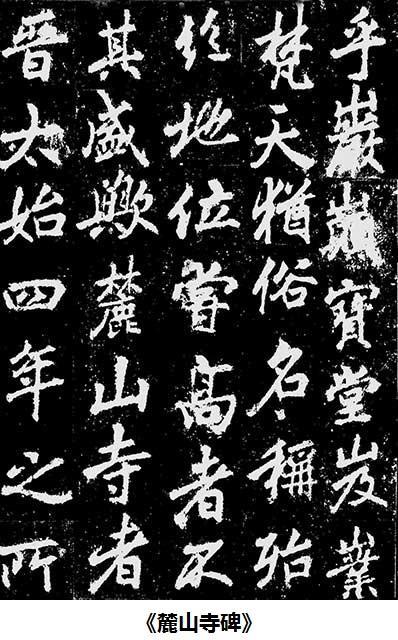 乎巖巔寶堂岌業
梵天猶俗名稱殆
絕地位嘗高者不
其盛歟麓山寺者
晉太始四年之所
《麓山寺碑》